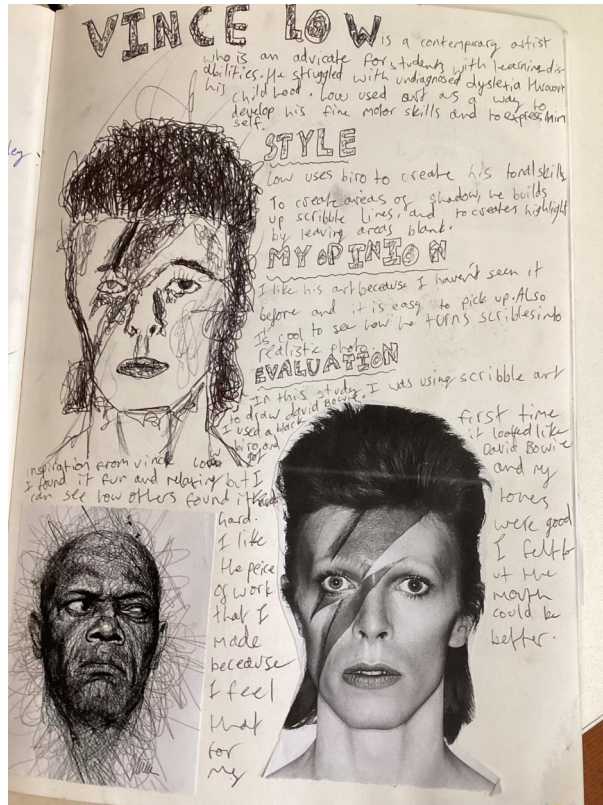 VINCE LOW is a contemporary artist
who is an advicate for students with learning dis-
abilities. He struggled with undiagnosed dyslexia throwout
his childhood. Low used art as a way to
develop his fine motor skills and to express him
self.
STYLE
Low uses biro to create his tonal skills
To create areas of shadow, he builds
up scribble lines, and to creates highlight
by leaving areas blank.
MY OPINION
I like his art because I haven't seen it
before and it is easy to pick up. Also
Is cool to see how he turns scribles into
realistic photo.
EVALUATION
In this study, I was using scribble art
to draw david Bowie.
I used a black
biro, and
inspiration from vince Low
I found it fun and relaxing but I
can see how others found it
hard.
I like
the peice
of work
that I
made
beceause
I feel
that
for
my
first time
it looked like
David Bowie
and my
tones
were good
I felt
ut the
mouth
could be
better.
ley